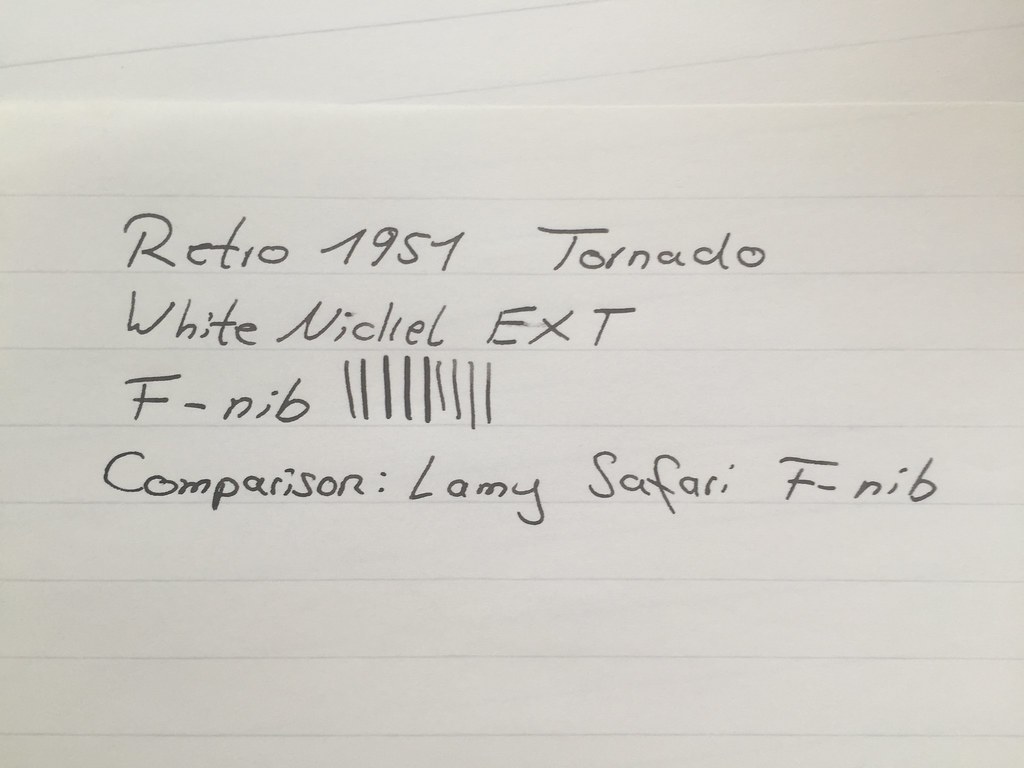 Retro 1951 Tornado
White Nickel EXT
F-nib
Comparison: Lamy Safari F-nib